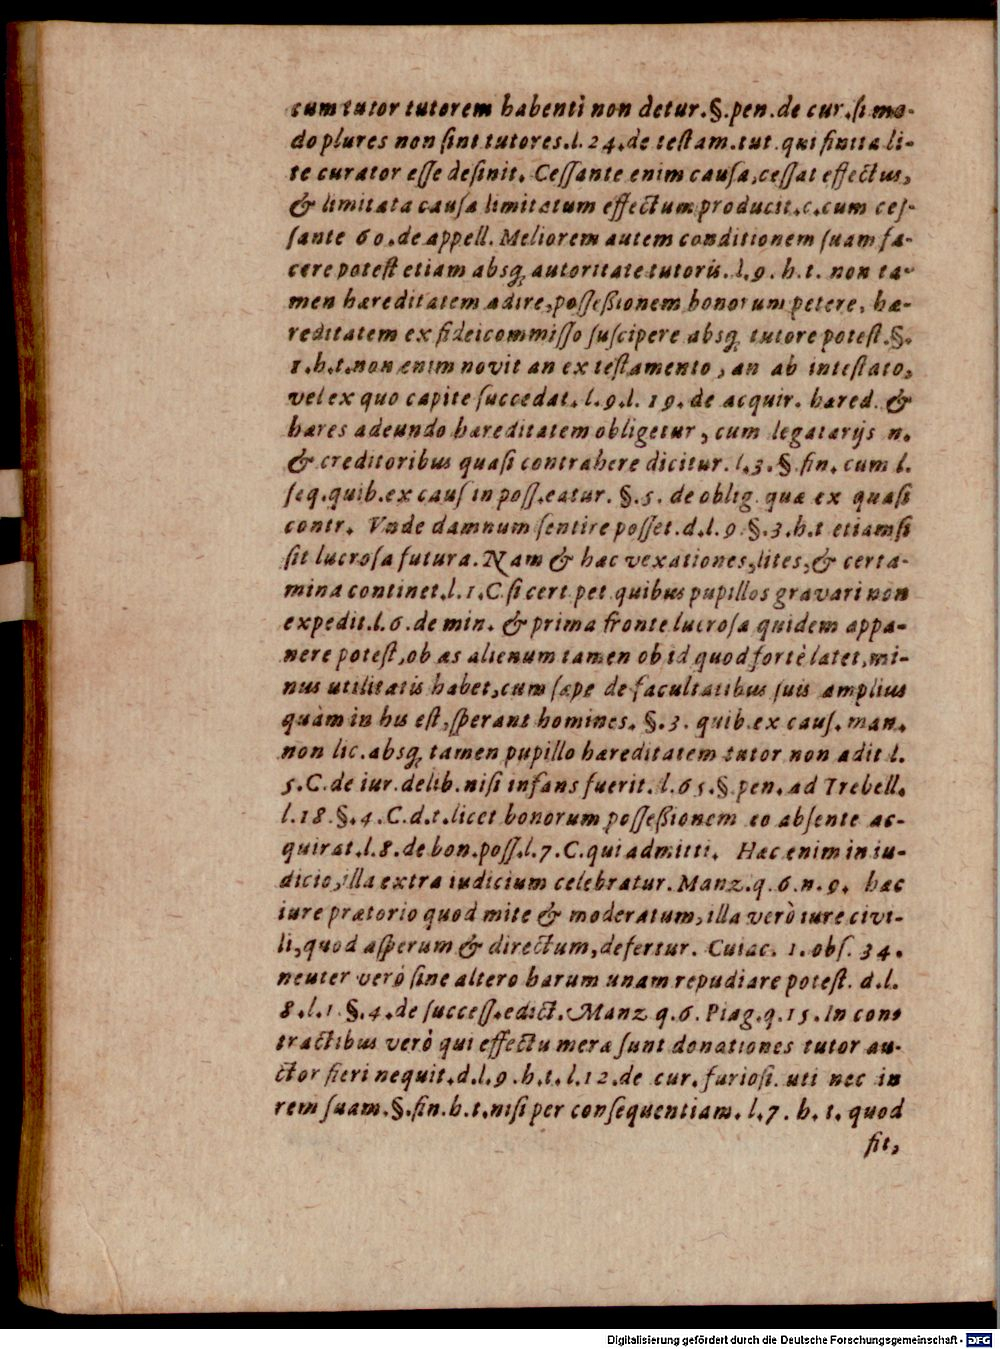 cum tutor tutorem habenti non detur.§.pen.de cur.ſi mo-
do plures non ſint tutores.l.24.de teſtam.tut qui finita li-
te curator eſſe deſinit. Ceſſante enim cauſa,ceſſat effectus,
& limitata cauſa limitatum effectum producit.c.cum ceſ-
ſante 60.de appell. Meliorem autem conditionem ſuam fa-
cere poteſt etiam absq; autoritate tutoris.l.9.h.t. non ta-
men hæreditatem adire,poſſeßionem bonorum petere, hæ-
reditatem ex fideicommiſſo ſuſcipere absq; tutore poteſt.§.
1.h.t.non enim novit an ex teſtamento, an ab inteſtato,
vel ex quo capite ſuccedat.l.9.l. 19.de acquir. hæred. &
hæres adeundo hæreditatem obligetur, cum legatarijs n.
& creditoribus quaſi contrahere dicitur.l.3.§ fin.cum l.
ſeq.quib.ex cauſ in poſſ.eatur. §.5. de oblig. quæ ex quaſi
contr. Vnde damnum ſentire poſſet.d.l.9 §.3.h.t etiamſi
ſit lucroſa futura. Nam & hæc vexationes,lites,& certa-
mina continet.l.1.C.ſi cert pet quibus pupillos gravari non
expedit.l.6.de min. & prima fronte lucroſa quidem appa-
nere poteſt,ob æs alienum tamen ob id quod fortè latet,mi-
nus utilitatis habet,cum ſæpe de facultatibus ſuis amplius
quàm in his eſt,ſperant homines. §.3. quib.ex cauſ.man.
non lic.absq; tamen pupillo hæreditatem tutor non adit l.
5.C.de iur.delib.niſi infans fuerit.l.65.§.pen.ad Trebell.
l.18.§.4.C.d.t.licet bonorum poſſeßionem eo abſente ac-
quirat.l.8.de bon.poſſ.l.7.C.qui admitti. Hæc enim in iu-
dicio,illa extra iudicium celebratur. Manz.q.6.n.9. hæc
iure prætorio quod mite & moderatum,illa verò iure civi-
li,quod aſperum & directum,defertur. Cuiac. 1.obſ. 34.
neuter verò ſine altero harum unam repudiare poteſt. d.l.
8.l.1.§.4.de ſucceſſ.edict. Manz q.6. Piag.q.15. In con-
tractibus verò qui effectu meræ ſunt donationes tutor au-
ctor fieri nequit.d.l.9.h.t.l.12.de cur.furioſi. uti nec in
rem ſuam.§.fin.h.t.niſi per conſequentiam.l.7. h.t. quod
ſit,
Digitalisierung gefördert durch die Deutsche Forschungsgemeinschaft - DFG